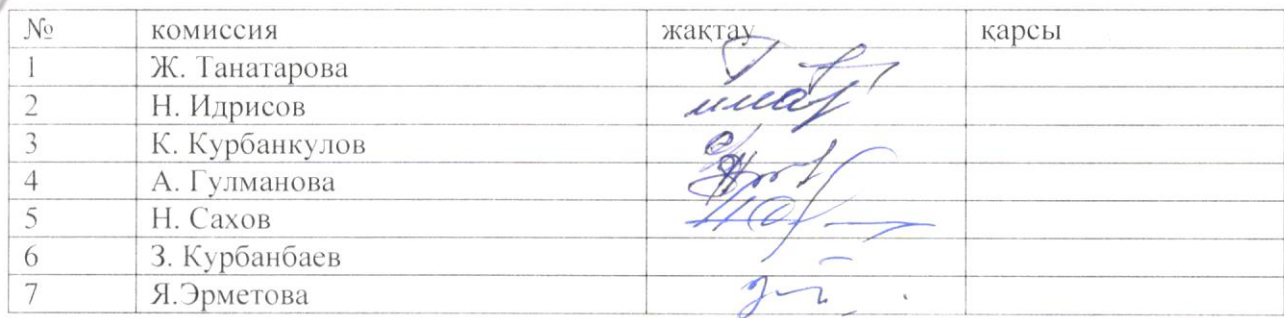 № комиссия жақтау қарсы
1 Ж. Танатарова
2 Н. Идрисов
3 К. Курбанкулов
4 А. Гулманова
5 Н. Сахов
6 З. Курбанбаев
7 Я.Эрметова